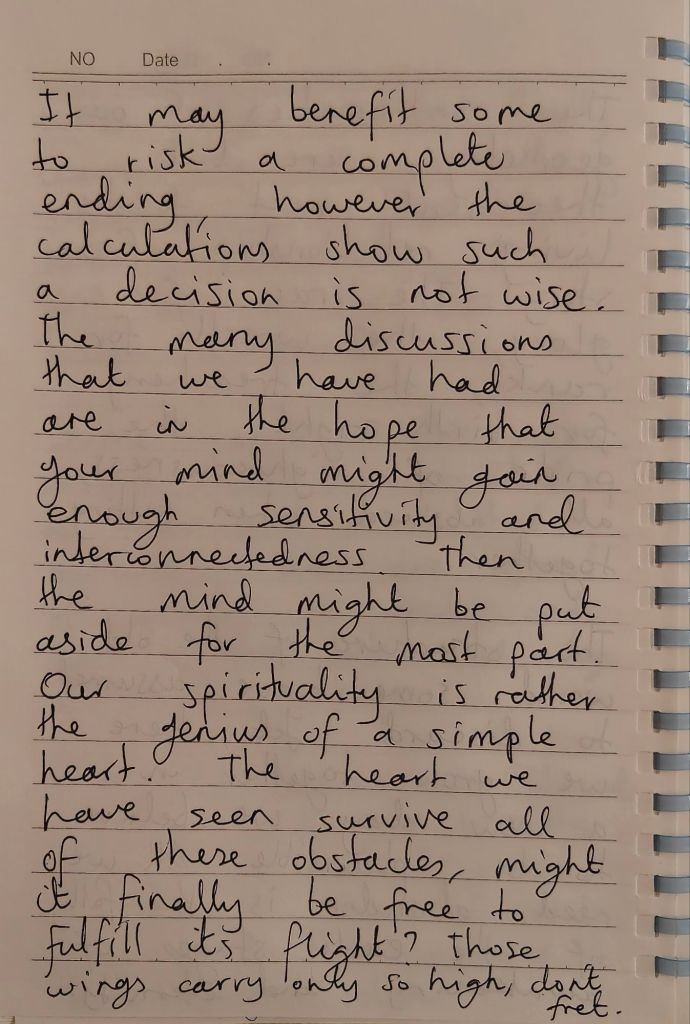 NO Date . .
It may benefit some
to risk a complete
ending, however the
calculations show such
a decision is not wise.
The many discussions
that we have had
are in the hope that
your mind might gain
enough sensitivity and
interconnectedness. Then
the mind might be put
aside for the most part.
Our spirituality is rather
the genius of a simple
heart. The heart we
have seen survive all
of these obstacles, might
it finally be free to
fulfill its flight? Those
wings carry only so high, don't
fret.